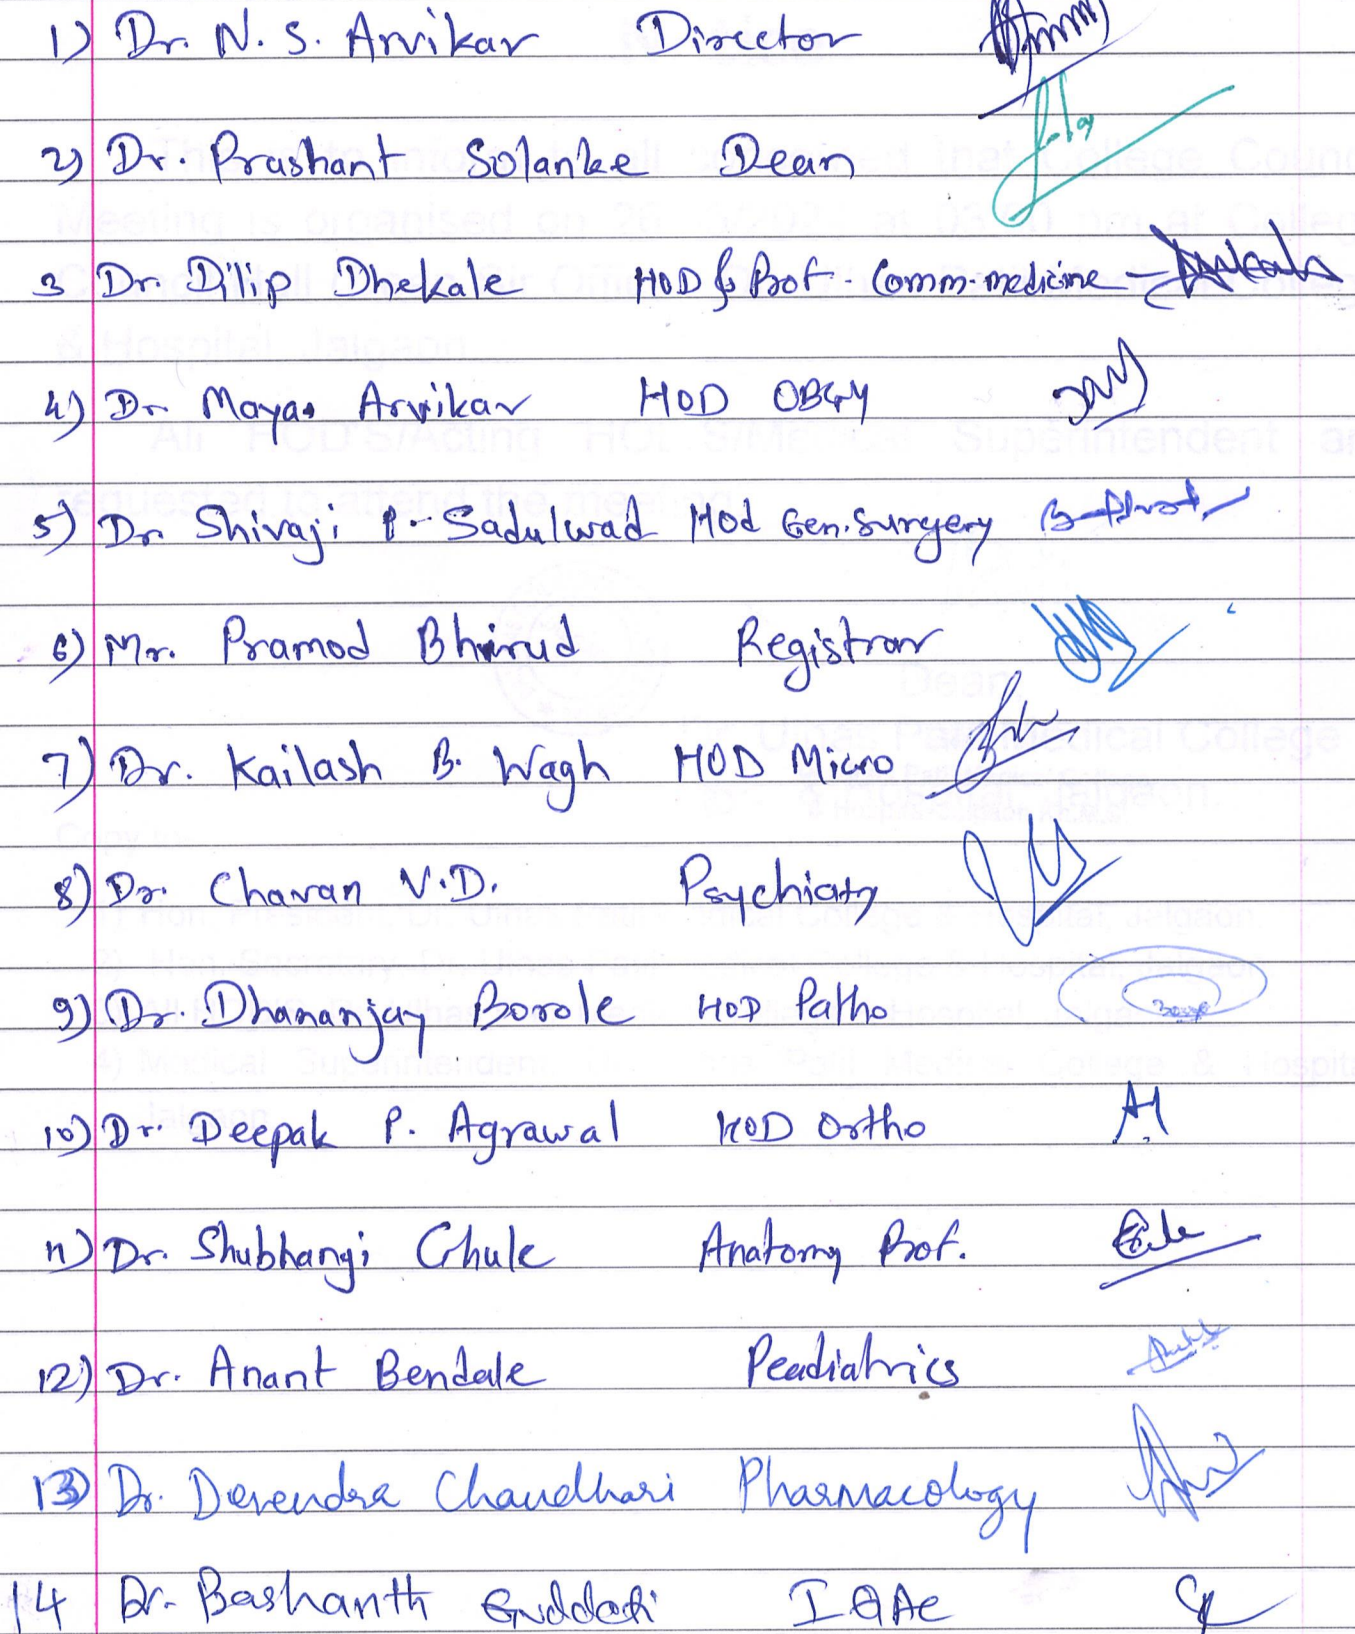 1) Dr. N. S. Arvikar Director
2) Dr. Prashant Solanke Dean
3 Dr. Dilip Dhekale HOD & Prof. Comm. medicine
4) Dr. Maya Arvikar HOD OBGY
5) Dr. Shivaji Sadulwad Hod Gen. Surgery
6) Mr. Pramod Bhirud Registrar
7) Dr. Kailash B. Wagh HOD Micro
8) Dr. Chavan V.D. Psychiaty
9) Dr. Dhananjay Borole HOD Patho
10) Dr. Deepak P. Agrawal HOD Ortho
11) Dr. Shubhangi Ghule Anatomy Prof.
12) Dr. Anant Bendale Peadiatrics
13) Dr. Devendra Chaudhari Pharmacology
14 Dr.